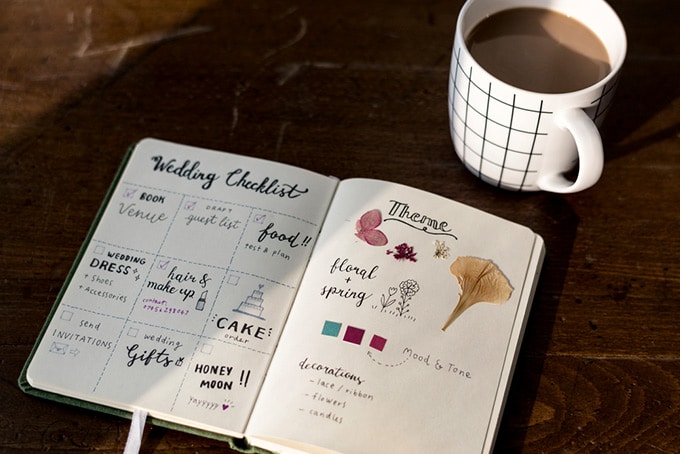 Wedding Checklist
BOOK
Venue
DRAFT
guest list
food!!
test & plan
WEDDING
DRESS
+ Shoes
+ Accessories
hair &
make up
contact:
CAKE
order
send
INVITATIONS
wedding
Gifts
HONEY
MOON !!
yayyyyy
Theme
floral
+
spring
Mood & Tone
decorations
- lace / ribbon
- flowers
- candles